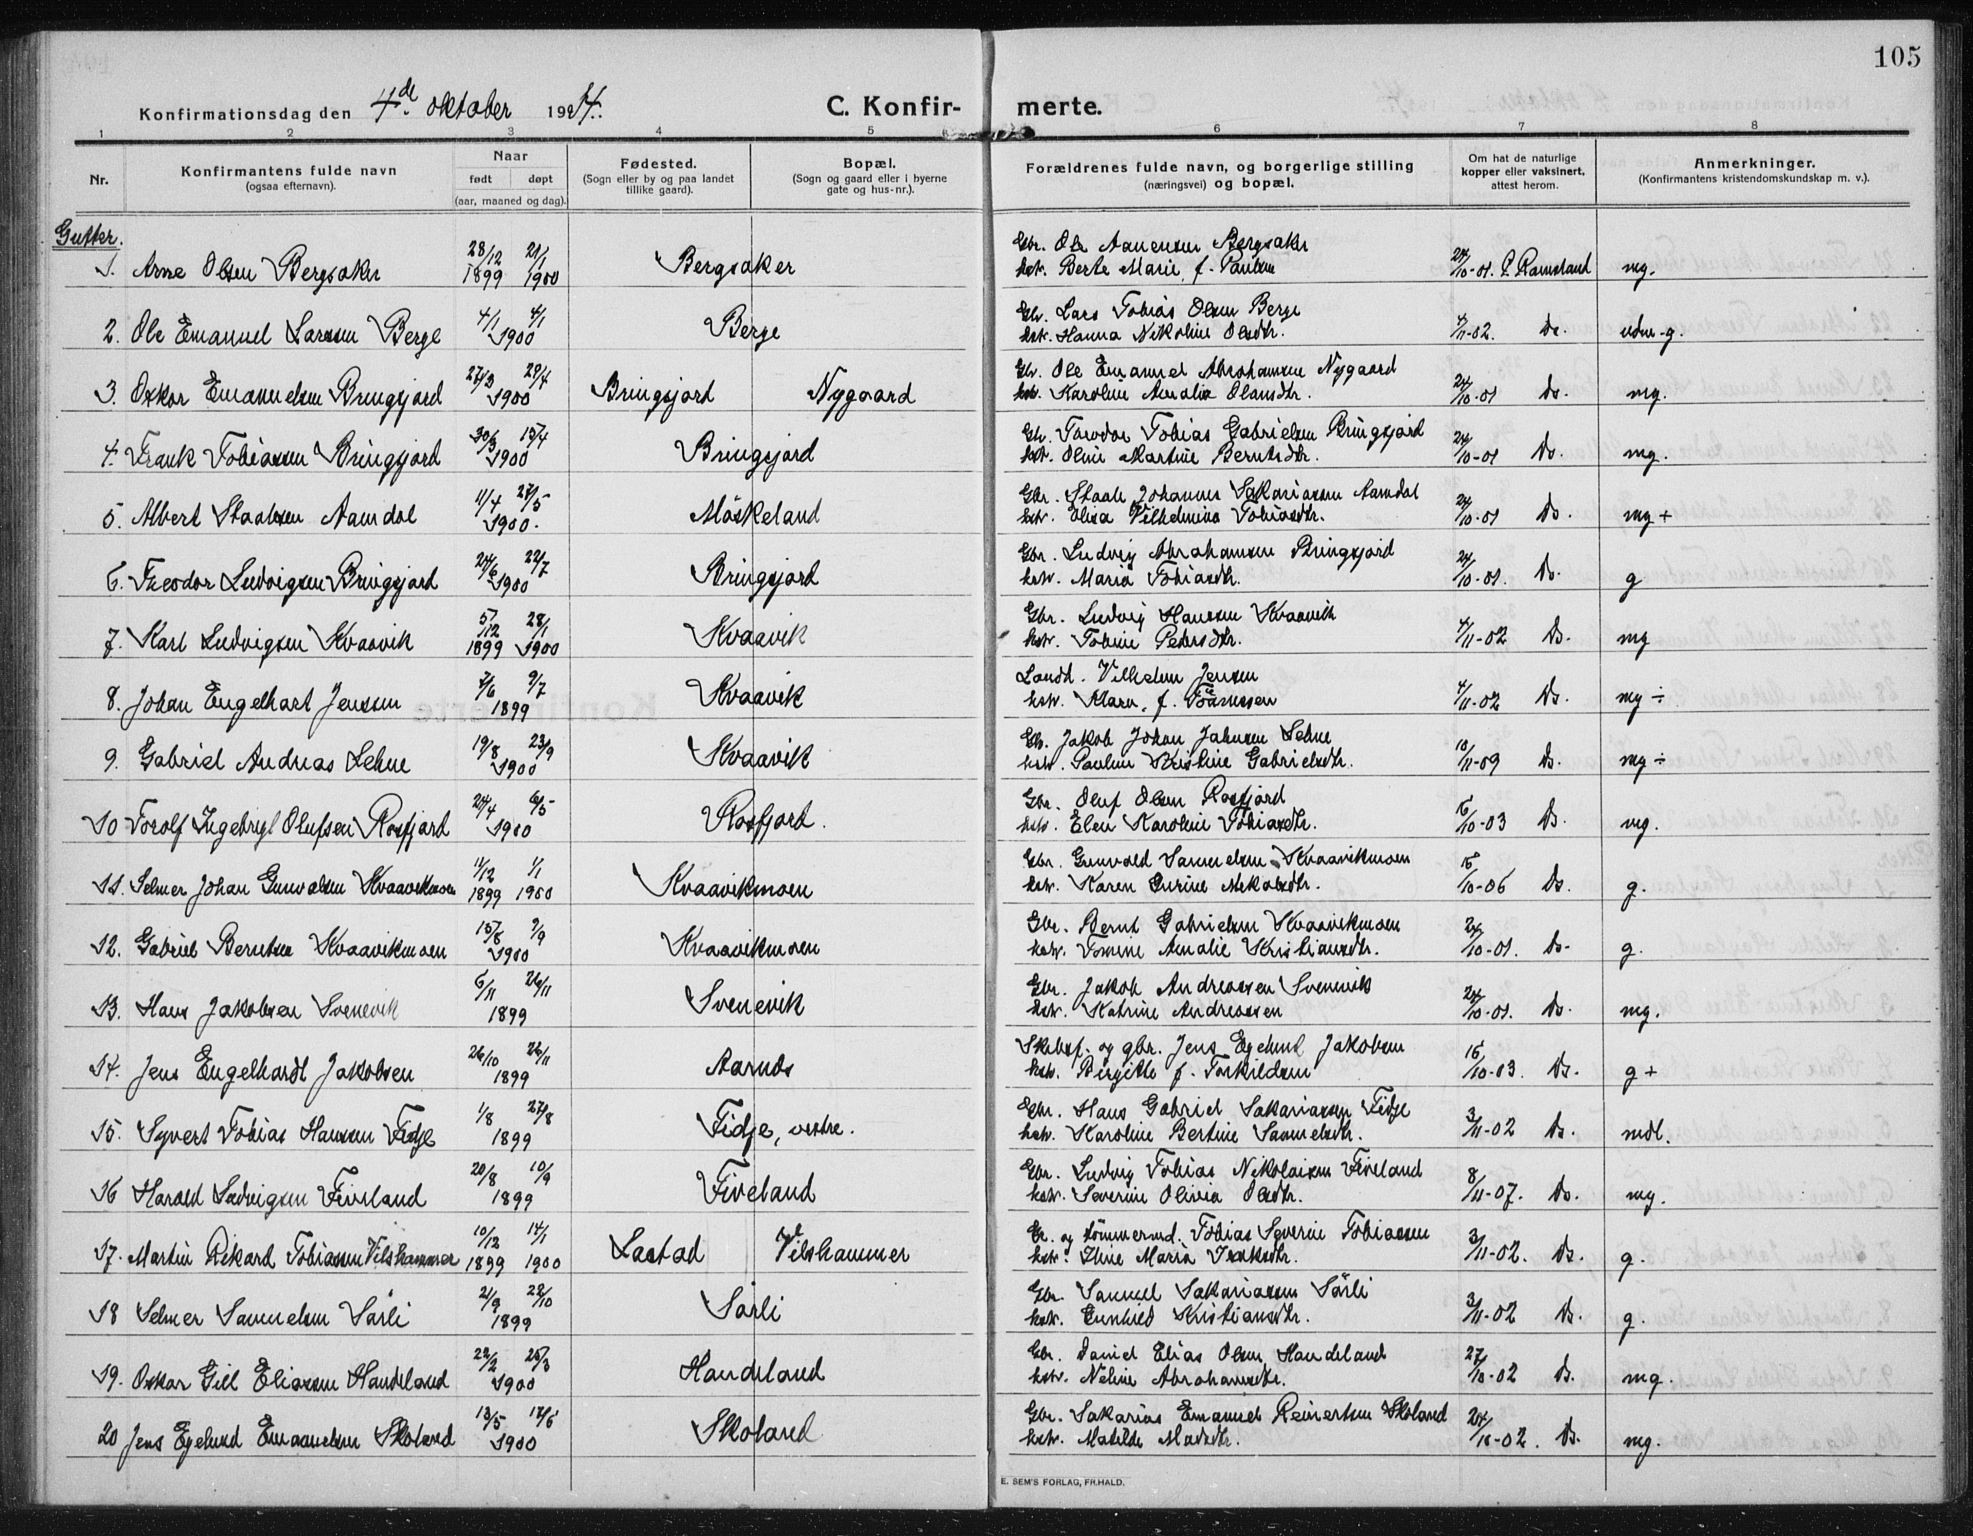 105
Konfirmationsdag den 4de oktober 1914.
C. Konfirmerte.
1 2 3 4 5 6 7 8
Nr.
Konfirmantens fulde navn
(ogsaa efternavn).
Naar
født døpt
(aar, maaned og dag).
Fødested.
(Sogn eller by og paa landet
tillike gaard).
Bopæl.
(Sogn og gaard eller i byerne
gate og hus-nr.).
Forældrenes fulde navn, og borgerlige stilling
(næringsvei) og bopæl.
Om hat de naturlige
kopper eller vaksinert,
attest herom.
Anmerkninger.
(Konfirmantens kristendomskundskap m. v.).
Gutter.
1. Arne Olsen Bergsaker 28/12 1899 21/1 1900 Bergsaker Gbr. Ole Aanensen Bergsaker
hst. Berte Marie, f. Paulsen 24/10-01. P. Ramsland mg.
2. Ole Emanuel Larssen Berge 4/1 4/1 1900 Berge Gbr. Lars Tobias Olsen Berge
hst. Hanna Nikoline Olsdtr. 4/11-02. Ds. udm-g.
3. Oskar Emanuelsen Bringsjord 27/3 29/4 1900 Bringsjord Nygaard Gbr. Ole Emanuel Abrahamsen Nygaard
hst. Karoline Amalia Olausdtr. 24/10-01 Ds. mg.
4. Frank Tobiassen Bringsjord 30/3 15/4 1900 Bringsjord Gbr. Tobias Gabrielsen Bringsjord
hst. Oline Martine Berntsdtr. 24/10-01 Ds. mg.
5. Albert Staalesen Aamdal 11/4 27/5 1900. Møskeland Gbr. Staale Johannes Sakariassen Aamdal
hst. Elisa Vilhelmina Tobiasdtr. 24/10-01 Ds. mg +
6. Theodor Ludvigsen Bringsjord 24/6 22/7 1900 Bringsjord Gbr. Ludvig Abrahamsen Bringsjord
hst. Maria Tobiasdtr. 24/10-01. Ds. g
7. Karl Ludvigsen Kvaavik 5/12 1899 28/1 1900 Kvaavik Gbr. Ludvig Hanssen Kvaavik
hst. Tobine Petersdtr. 4/11-02 Ds. mg
8. Johan Engelhart Jenssen 7/6 9/7 1899 Kvaavik Landh. Vilhelm Jensen
hst. Klara, f. 4/11-02 Ds. mg ÷
9. Gabriel Andreas Lehne 19/8 23/9 1900 Kvaavik Gbr. Jakob Johan Jahnsen Lehne
hst. Pauline Kristine Gabrielsdtr. 18/11-09 Ds. mg ÷
10 Torolf Ingebrigt Olufsen Rosfjord 24/4 6/5 1900 Rosfjord. Gbr. Oluf Olsen Rosfjord
hst. Elen Karoline Tobiasdtr. 15/10-03 Ds. mg.
11. Selmer Johan Gunvalsen Kvaavikmoen 11/12 1899 1/1 1900 Kvaavikmoen Gbr. Gunvald Samuelsen Kvaavikmoen
hst. Karen Gurine Mekalsdtr. 15/10-06 Ds. g.
12. Gabriel Berntsen Kvaavikmoen 15/8 2/9 1900 Kvaavikmoen Gbr. Bernt Gabrielsen Kvaavikmoen
hst. Tomine Amalie Kristiansdtr. 24/10-01. Ds. g.
13. Hans Jakobsen Svenevik 6/11 26/11 1899 Svenevik Gbr. Jakob Andreassen Svenevik
hst. Katrine Andreassen 24/10-01. Ds. mg.
14. Jens Engelhardt Jakobsen 26/10 26/11 1899 Aarnes Skibsf. og gbr. Jens Egelund Jakobsen
hst. Birgitte f. Torkildsen 15/10-03. Ds. g +
15. Syvert Tobias Hanssen Fidje 1/8 27/8 1899 Fidje, vestre. Gbr. Hans Gabriel Sakariassen Fidje
hst. Karoline Bertine Samuelsdtr. 3/11-02 Ds. mdl.
16 Harald Ludvigsen Fiveland 20/8 10/9 1899 Fiveland Gbr. Ludvig Tobias Nikolaisen Fiveland
hst. Severine Olivia Olsdtr. 8/11-07. Ds. mg.
17. Martin Rikard Tobiassen Vilshammer 10/12 1899 14/1 1900 Lastad Vilshammer Gr. og tømmermd. Tobias Severin Tobiassen
hst. Maria Isaksdtr. 3/11-02. Ds. g.
18 Selmer Samuelsen Sørli 2/9 22/10 1899 Sørli Gbr. Samuel Sakariassen Sørli
hst. Gunhild Kristiansdtr. 3/11-02 Ds. g.
19. Oskar Gill Eliassen Handeland 22/2 25/3 1900 Handeland Gbr. Daniel Elias Olsen Handeland
hst. Neline Abrahamsdtr. 27/10-02 Ds. mg.
20 Jens Egelund Emanuelsen Skoland 13/5 17/6 1900 Skoland Gbr. Sakarias Emanuel Reinertsen Skoland
hst. Matilde Madsdtr. 24/10-02. Ds. mg.
E. SEM'S FORLAG, FR.HALD.